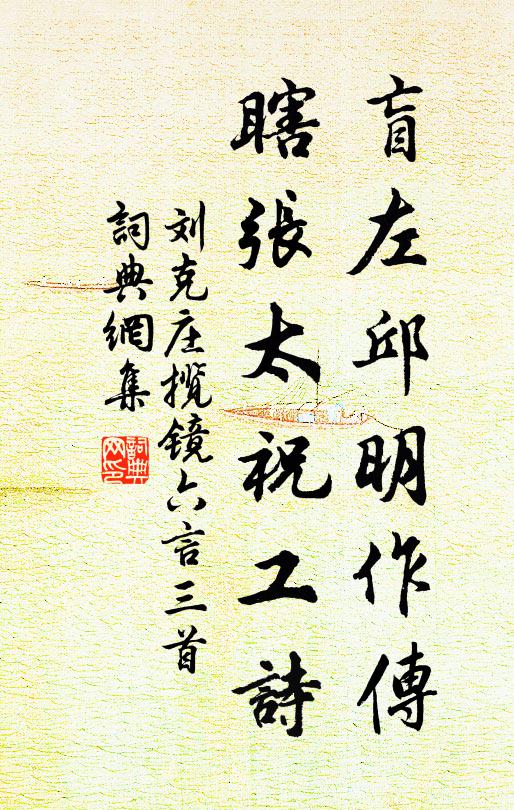 盲左邱明作傳
瞎張太祝工詩
刘克庄揽镜六言三首
詞典網集
詞典网印